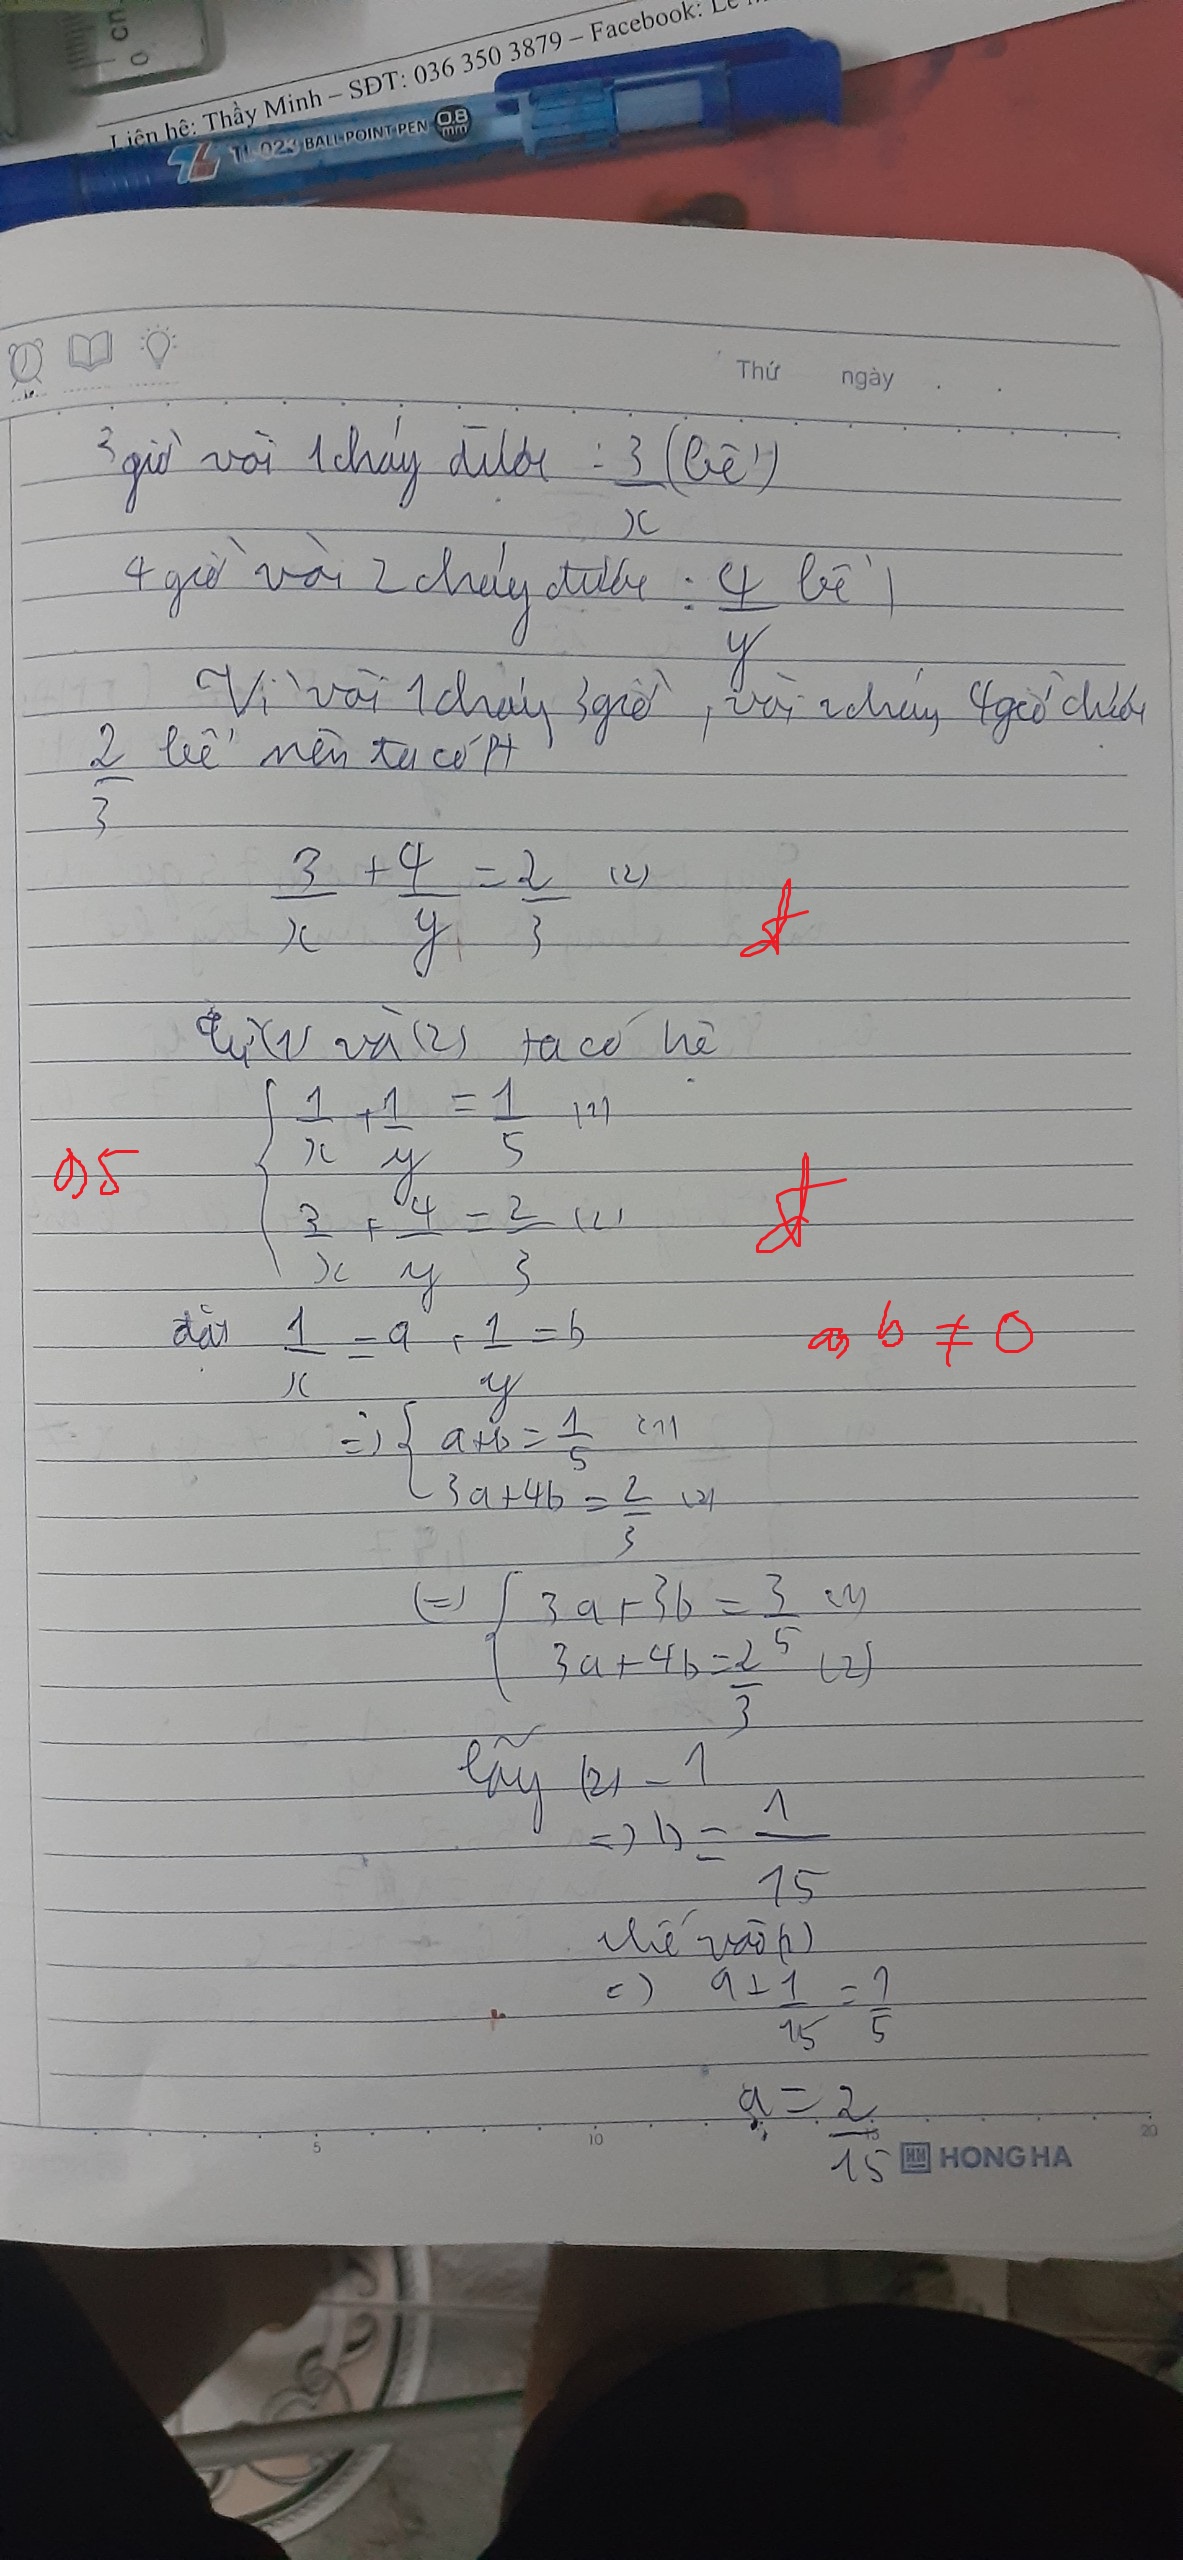 0 cm
Liên hệ: Thầy Minh – SĐT: 036 350 3879 – Facebook: Lê
TL-023 BALL-POINT PEN 0.8 mm
Thứ ngày
3 giờ vòi 1 chảy được : 3/x (bể)
4 giờ vòi 2 chảy được : 4/y bể
Vì vòi 1 chảy 3 giờ, vòi 2 chảy 4 giờ được
2/3 bể nên ta có Pt
3/x + 4/y = 2/3 (2)
đ
Từ (1) và (2) ta có hệ
1/x + 1/y = 1/5 (1)
0,5
3/x + 4/y = 2/3 (2)
đ
đặt 1/x = a , 1/y = b
a, b ≠ 0
=> { a+b = 1/5 (1)
3a+4b = 2/3 (2)
(=) { 3a+3b = 3/5 (1)
3a+4b = 2/3 (2)
lấy (2) - 1
=> b = 1/15
thế vào (1)
=> a + 1/15 = 1/5
a = 2/15
5 10 15 20
HONG HA